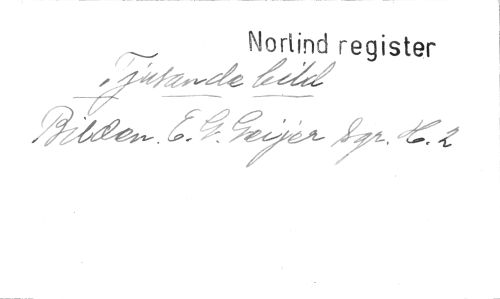 Norlind register
Tjusande bild
Bilden. E. G. Geijer Sgr. H. 2